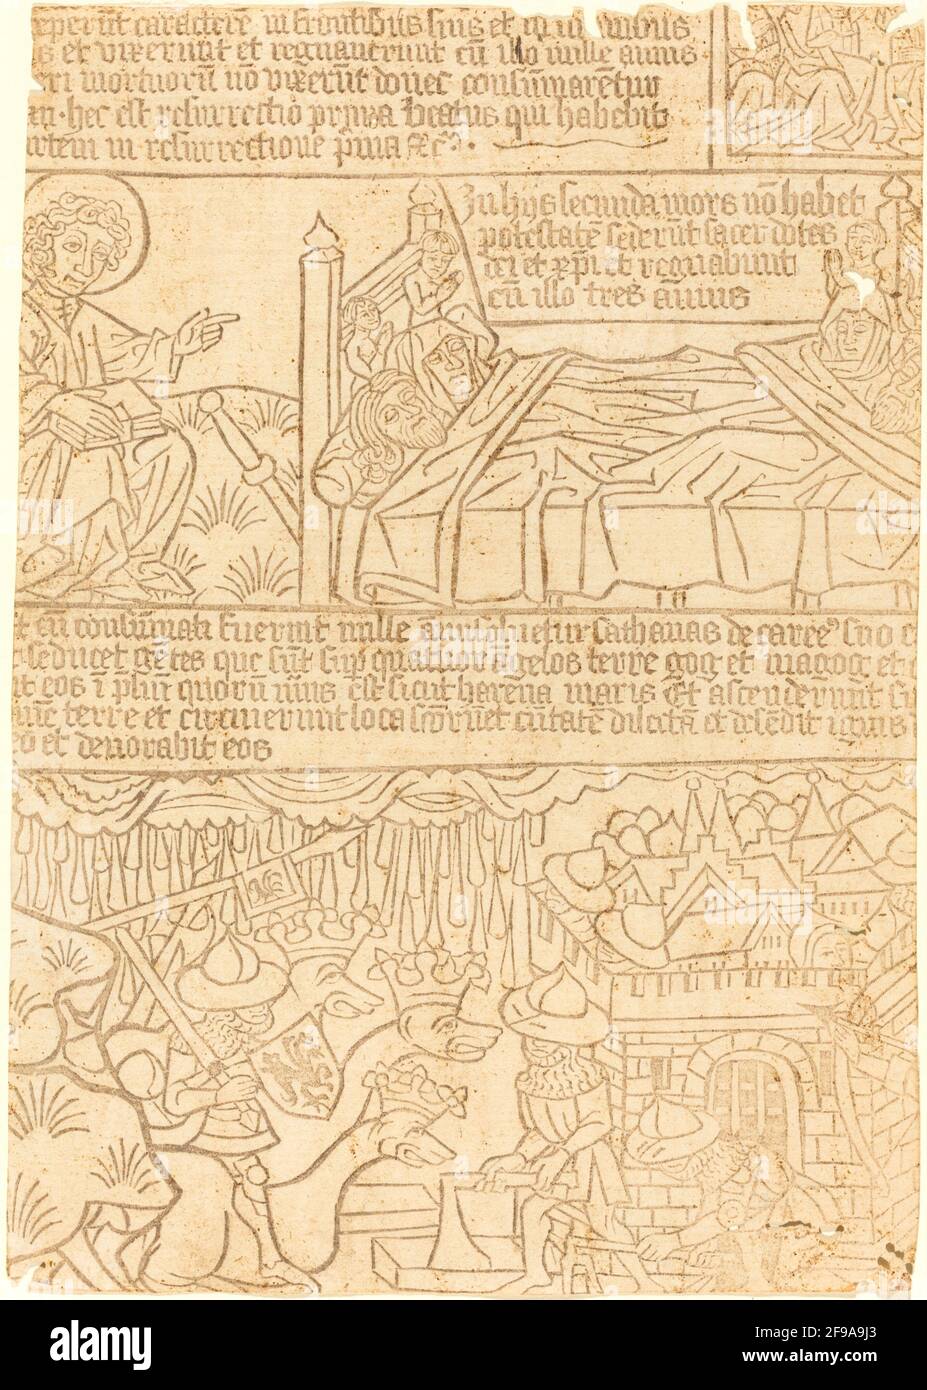 eperut caracterē in frontibus suis et in manibus
s et vixerunt et regnauerunt cū illo mille annis
eri mortuorū nō vixerūt donec consūmarētur
hec est resurrectio prima beatus qui habebit
artem in resurrectione pima
In hiis secunda mors nō habet
potestatē sed erūt sacerdotes
dei et xpi et regnabunt
cū illo tres annis
t cū consūmati fuerint mille anni soluetur sathanas de carcere suo
seducet gētes que sūt sup quattuor āgelos terre gog et magog et
it eos ī pliū quorū nūus est sicut harena maris Et ascenderunt
terre et circuierunt loca scōr et ciuitatē dilectā et desēdit ignis
o et deuorabit eos
alamy
alamy
Image ID: 2F9A9J3
www.alamy.com